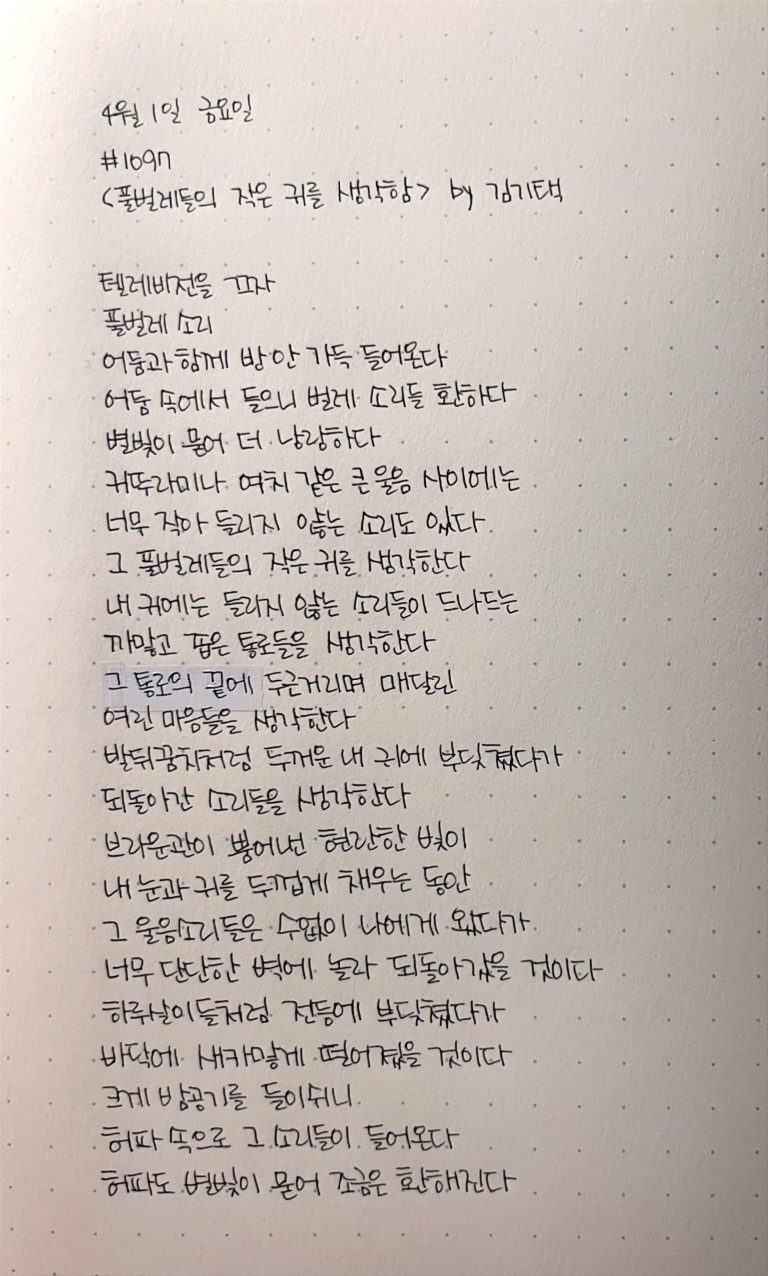 4월 1일 금요일
#1097
<풀벌레들의 작은 귀를 생각함> by 김기택
텔레비전을 끄자
풀벌레 소리
어둠과 함께 방 안 가득 들어온다
어둠 속에서 들으니 벌레 소리들 환하다
별빛이 묻어 더 낭랑하다
귀뚜라미나 여치 같은 큰 울음 사이에는
너무 작아 들리지 않는 소리도 있다
그 풀벌레들의 작은 귀를 생각한다
내 귀에는 들리지 않는 소리들이 드나드는
까맣고 좁은 통로들을 생각한다
그 통로의 끝에 두근거리며 매달린
여린 마음들을 생각한다
발뒤꿈치처럼 두꺼운 내 귀에 부딪쳤다가
되돌아간 소리들을 생각한다
브라운관이 뿜어낸 현란한 빛이
내 눈과 귀를 두껍게 채우는 동안
그 울음소리들은 수없이 나에게 왔다가
너무 단단한 벽에 놀라 되돌아갔을 것이다
하루살이들처럼 전등에 부딪쳤다가
바닥에 새카맣게 떨어졌을 것이다
크게 밤공기를 들이쉬니
허파 속으로 그 소리들이 들어온다
허파도 별빛이 묻어 조금은 환해진다